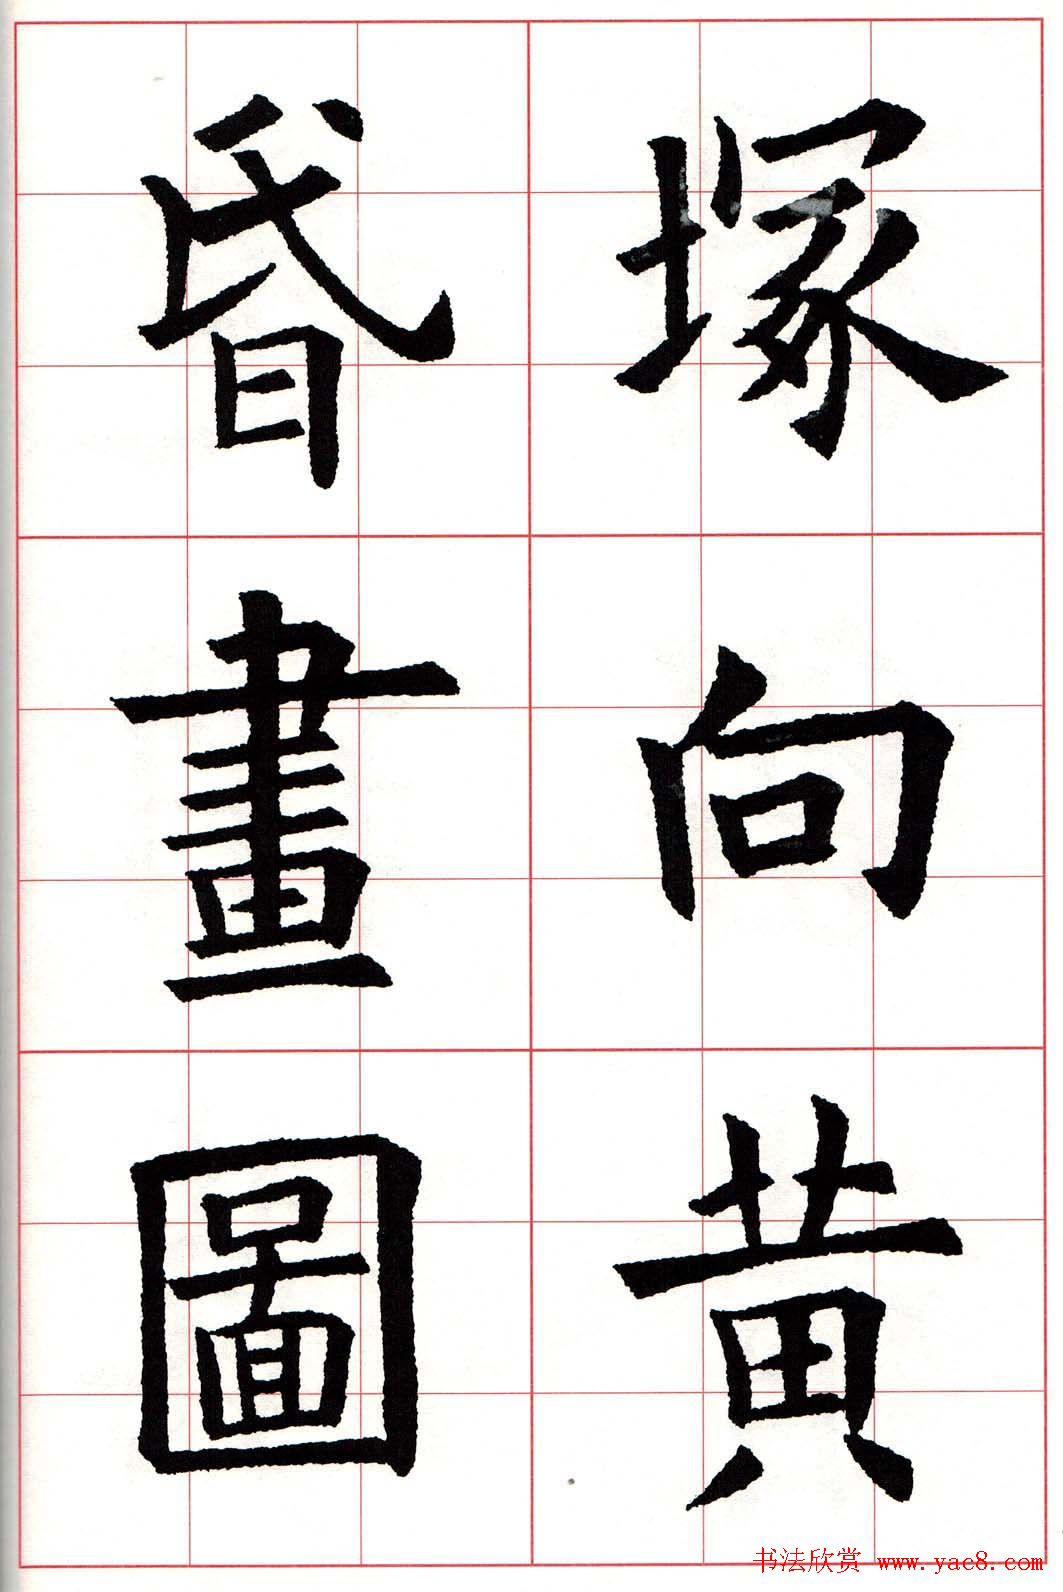 塚向黄
昏畫圖
书法欣赏 www.yac8.com